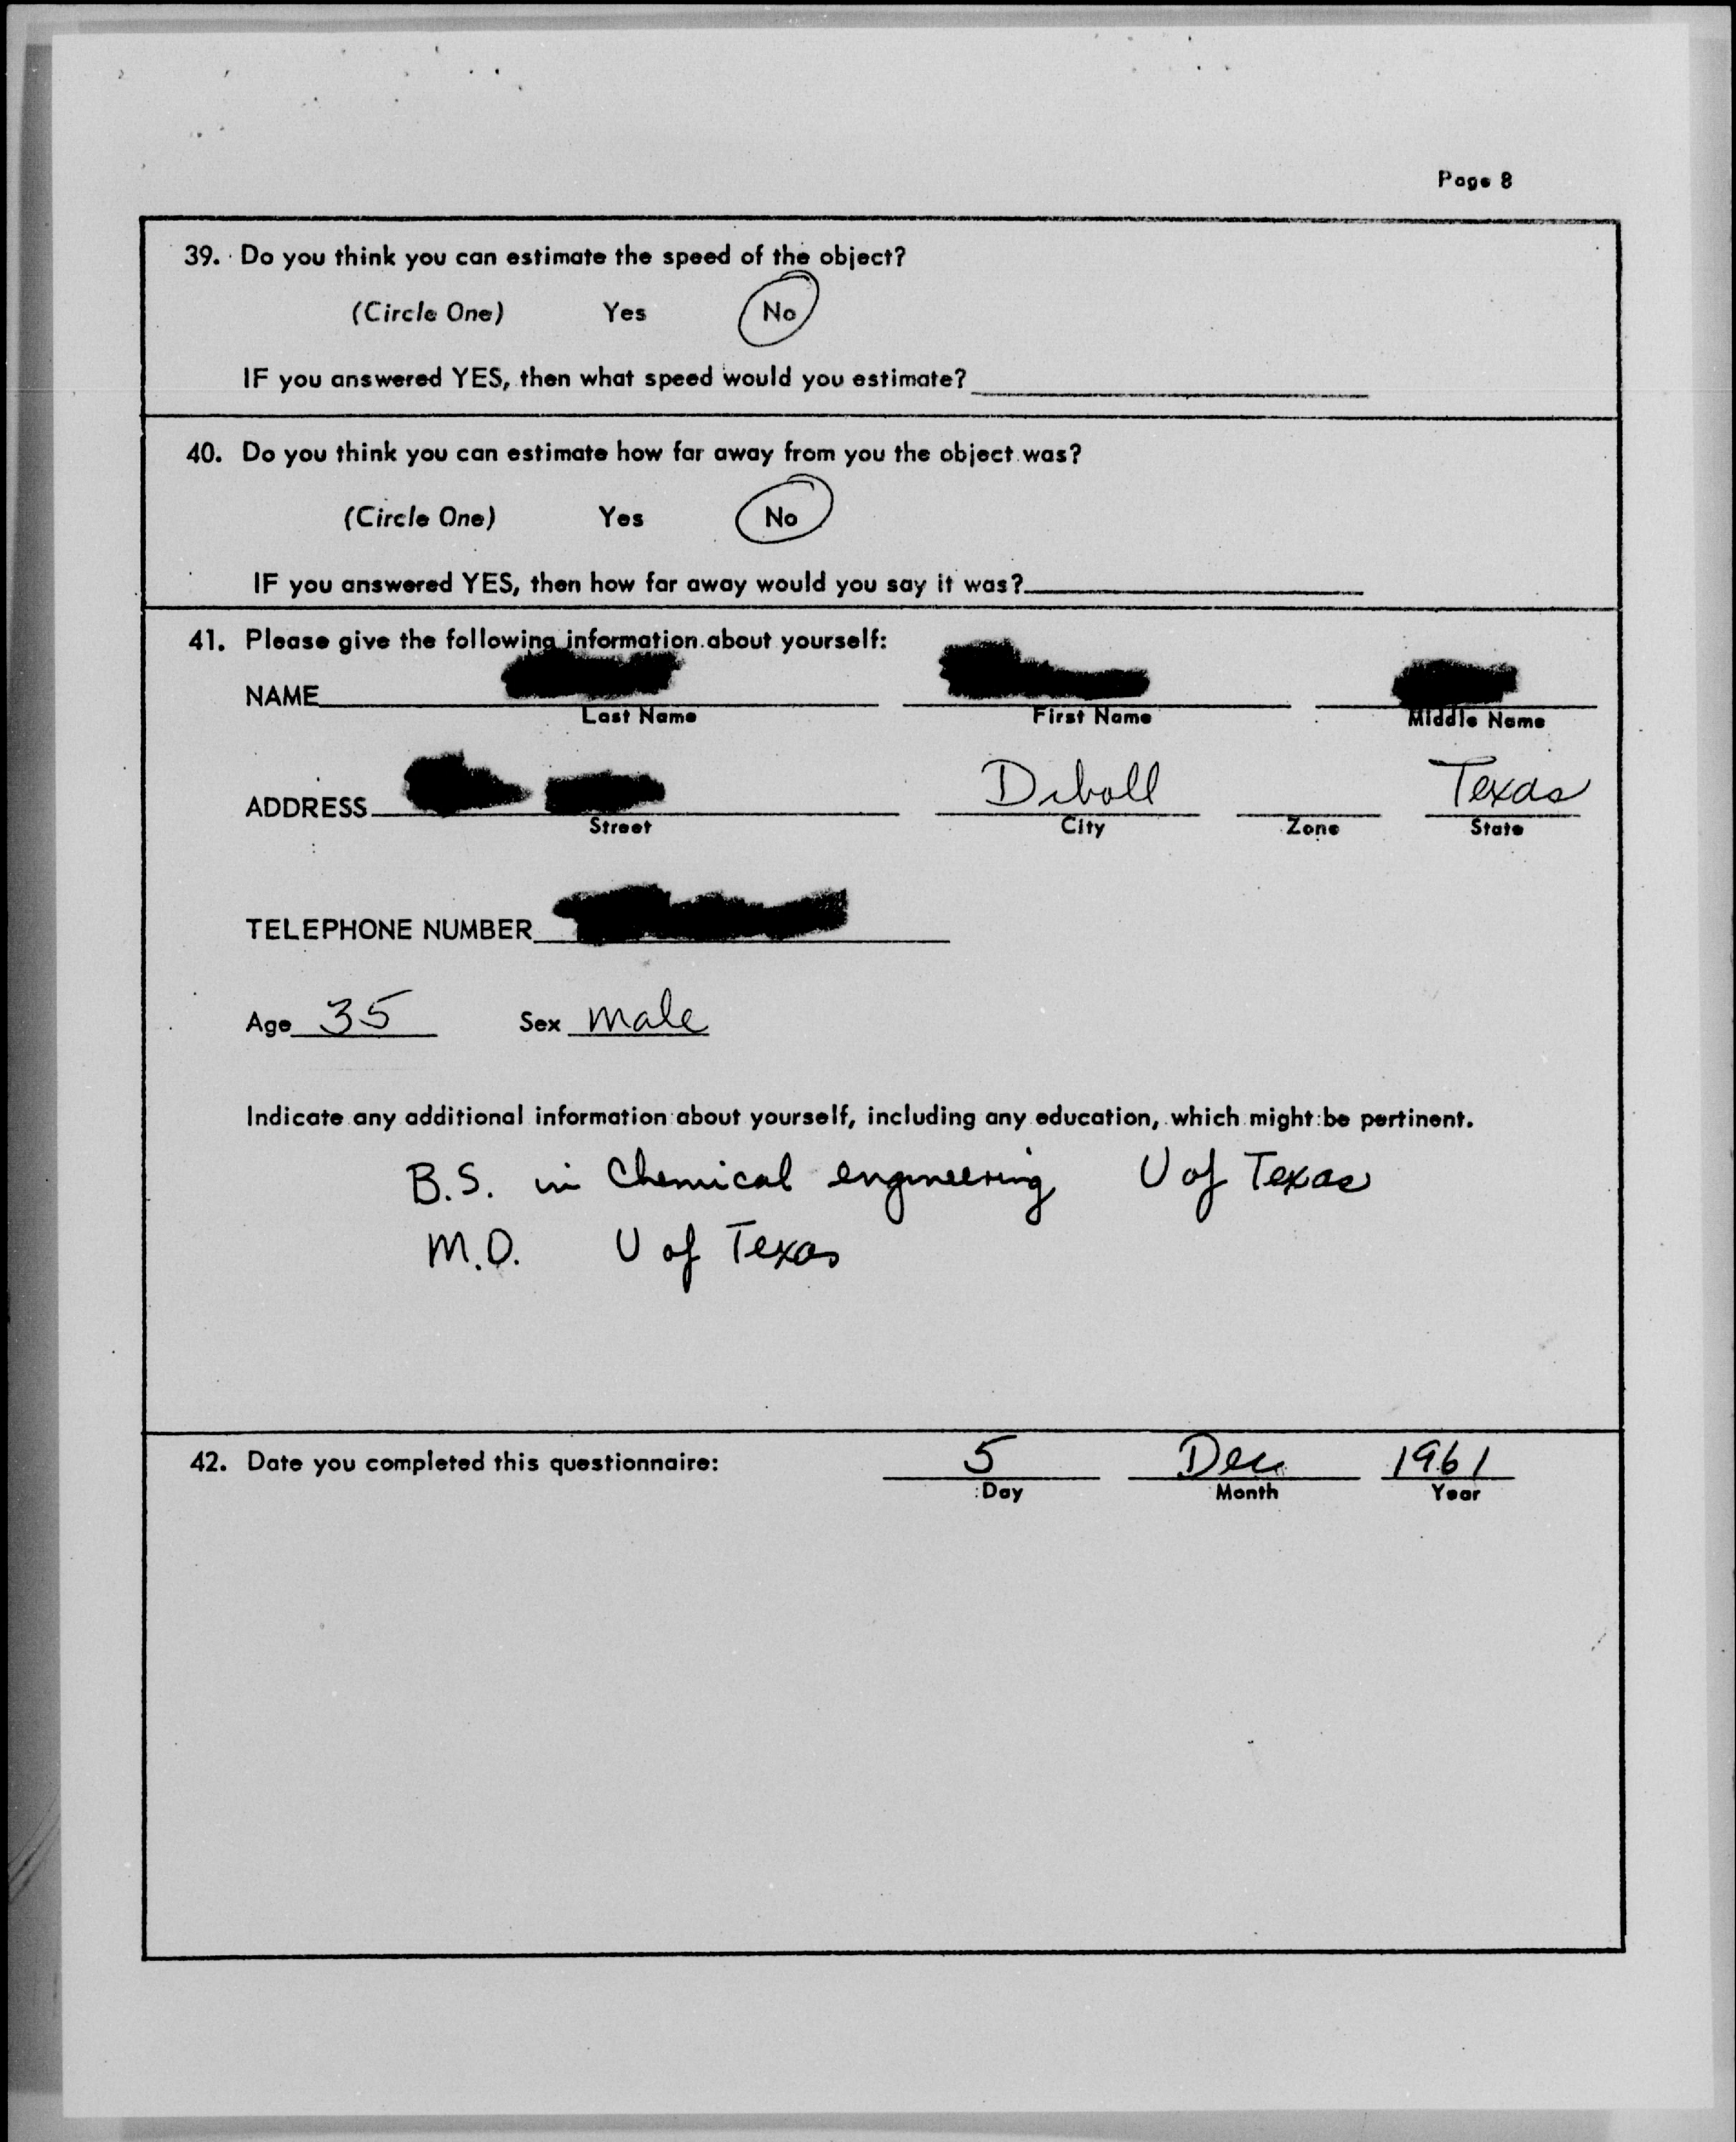 Page 8
39. Do you think you can estimate the speed of the object?
(Circle One) Yes No
IF you answered YES, then what speed would you estimate?
40. Do you think you can estimate how far away from you the object was?
(Circle One) Yes No
IF you answered YES, then how far away would you say it was?
41. Please give the following information about yourself:
NAME
Last Name First Name Middle Name
ADDRESS Diboll Texas
Street City Zone State
TELEPHONE NUMBER
Age 35 Sex male
Indicate any additional information about yourself, including any education, which might be pertinent.
B.S. in Chemical engineering U of Texas
M.D. U of Texas
42. Date you completed this questionnaire: 5 Dec 1961
Day Month Year